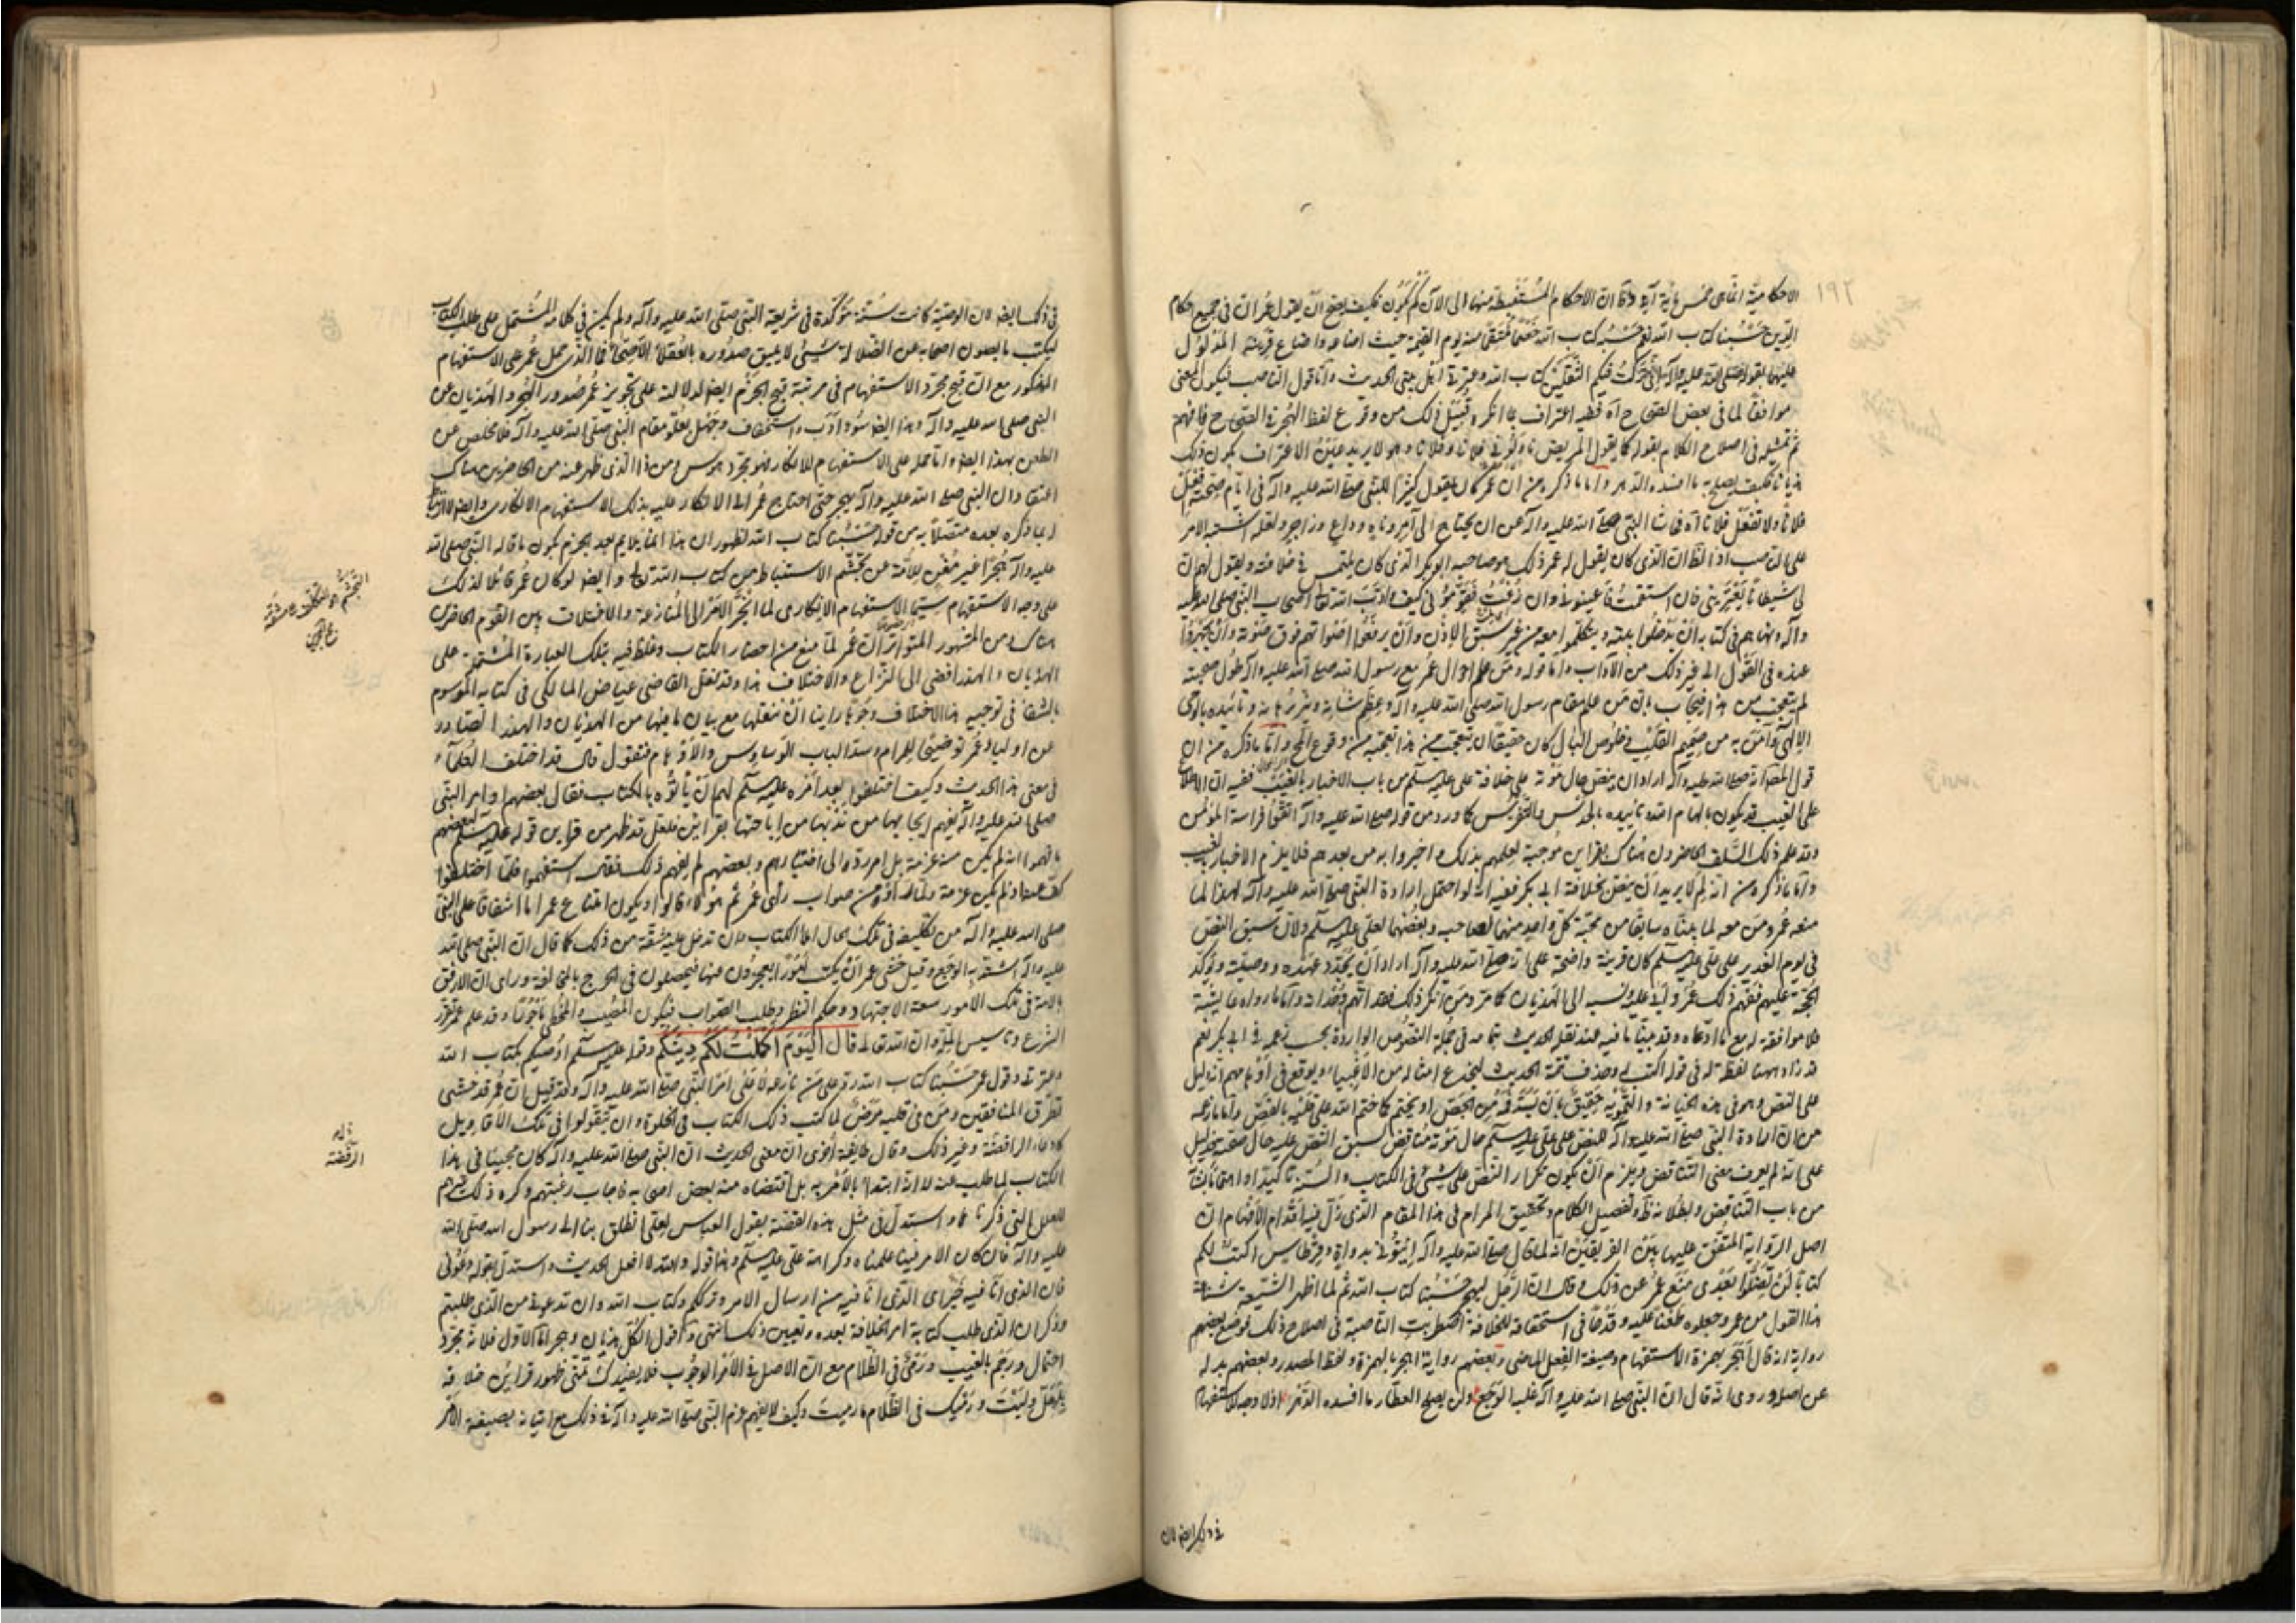 ١٩٢
الاحكامية انما هى خمس مائة آية وقا ان الاحكام المستنبطة منها الى الآن لم يكف فكيف يصح ان يقول عمر ان فى جميع احكام
الدين حسبنا كتاب الله نعم حسبه كتاب الله خصما منتقما منه يوم القيمة حيث اضاعه واضاع قرينه المدلول
عليهما بقوله صلى الله عليه وآله انى تركت فيكم الثقلين كتاب الله وعترتى اهل بيتى الحديث واما قول الناصب فيكون المعنى
موافقا لما فى بعض الصحاح آه ففيه اعتراف بما انكره قبيل ذلك من وقوع لفظ الهجر فى الصحاح فافهم
ثم تمثيله فى اصلاح الكلام بقوله كما يقول المريض ناولونى فلانا وفلانا وهو لا يريد عين الاعتراف بكون ذلك
هذيانا فكيف يصلح به ما افسده الدهر واما ما ذكره من ان عمر كان يقول كثيرا للنبى صلى الله عليه وآله فى ايام صحته افعل
فلانا ولا تفعل فلانا آه فحاشا النبى صلى الله عليه وآله عن ان يحتاج الى آمر وناه ورادع وزاجر ولعله اشتبه الامر
على الناصب اذ الظ ان الذى كان يقول له عمر ذلك هو صاحبه ابو بكر الذى كان يلتمس فى خلافته ويقول لهم ان
لى شيطانا يعترينى فان استقمت فاعينونى وان زغت فقومونى كيف وادب الله تعالى اصحاب النبى صلى الله عليه
وآله ونهاهم فى كتابه ان يدخلوا بيته ويتكلموا معه من غير سبق الاذن وان يرفعوا اصواتهم فوق صوته وان يجهروا
عنده فى القول الى غير ذلك من الآداب واما قوله ومن علم احوال عمر مع رسول الله صلى الله عليه وآله طول صحبته
لم يتعجب من هذا فيجاب بان من علم مقام رسول الله صلى الله عليه وآله وعظم شانه وتائيده بالوحى
الالهى وآمن به من صميم القلب وخلوص البال كان حقيقا ان يتعجب من هذا تعجبه من وقوع المحال واما ما ذكره من ان
قول المص انه صلى الله عليه وآله اراد ان ينص حال موته على خلافة على عليه السلم من باب الاخبار بالغيب ففيه ان الاطلاع
على الغيب قد يكون بالهام الله وتاييده بالحدس والتفرس كما ورد من قوله صلى الله عليه وآله اتقوا فراسة المؤمن
وقد علم ذلك السلف الحاضرون هناك بقراين موجبة لعلمهم بذلك واخبروا به من بعدهم فلا يلزم الاخبار بالغيب
واما ما ذكره من انه لم لا يريد ان ينص بخلافة ابى بكر ففيه انه لو احتمل ارادة النبى صلى الله عليه وآله لهذا لما
منعه عمر ومن معه لما بيناه سابقا من محبة كل واحد منهما لصاحبه وبغضهما لعلى عليه السلم ولان سبق النص
فى يوم الغدير على على عليه السلم كان قرينة واضحة على انه صلى الله عليه وآله اراد ان يجدد عهده ووصيته ويؤكد
الحجة عليهم ففهم ذلك عمر ونسبه الى الهذيان كما مر ومن انكر ذلك فقد اتهم واما ما رواه عايشة
فلا موافقة له مع ما ادعاه وقد بينا ما فيه عند نقل الحديث بتمامه فى جملة النصوص الواردة بحسب زعمه فى ابى بكر نعم
قد زاد ههنا لفظة له فى قوله اكتب له وحذف تتمة الحديث ليخدع امثاله من الاغبياء ويوقع فى اوهامهم انه دليل
على النص وهو فى هذه الخيانة والتمويه حقيق بان
من ان ارادة النبى صلى الله عليه وآله للنص على على عليه السلم حال موته مناقض لسبق النص عليه حال صحته فدليل
على انه لم يعرف معنى التناقض ويلزم ان يكون تكرار النص على شىء فى الكتاب والسنة تاكيدا او اهتماما بشانه
من باب التناقض وبطلانه ظ وتفصيل الكلام وتحقيق المرام فى هذا المقام الذى زل فيه اقدام الافهام ان
اصل الرواية المتفق عليها بين الفريقين انه لما قال صلى الله عليه وآله ايتونى بدواة وقرطاس اكتب لكم
كتابا لن تضلوا بعدى منع عمر عن ذلك وقال ان الرجل ليهجر حسبنا كتاب الله ثم لما اظهر الشيعة شناعة
هذا القول من عمر وجعلوه طعنا عليه وقدحا فى استحقاقه للخلافة اضطربت الناصبة فى اصلاح ذلك فوضع بعضهم
رواية انه قال أهجر بهمزة الاستفهام وصيغة الفعل الماضى وبعضهم رواية اهجر بالهمزة ولفظ المصدر وبعضهم بدله
عن اصله وروى انه قال ان النبى صلى الله عليه وآله غلبه الوجع ولن يصلح العطار ما افسده الدهر اذ لا وجه للاستفهام
فى ذلك ايضا لان
فى ذلك ايضا لان الوصية كانت سنة مؤكدة فى شريعة النبى صلى الله عليه وآله ولم يكن فى كلامه المشتمل على طلب الكتاب
ليكتب ما يصون اصحابه عن الضلالة شىء لا يليق صدوره بالعقلاء الاصحاء فما الذى حمل عمر على الاستفهام
المذكور مع ان قبح مجرد الاستفهام فى مرتبة قبح الجزم ايضا لدلالته على تجويز عمر صدور الهجر والهذيان عن
النبى صلى الله عليه وآله وهذا ايضا سوء ادب واستخفاف وجهل بعلو مقام النبى صلى الله عليه وآله فلا مخلص عن
الطعن بهذا ايضا واما حمله على الاستفهام للانكار فهو مجرد هوس ومن ذا الذى ظهر عنه من الحاضرين هناك
اعتقاد ان النبى صلى الله عليه وآله يهجر حتى احتاج عمر الى الانكار عليه بذلك الاستفهام الانكارى وايضا لا ارتباط
له بما ذكره بعده متصلا به من قوله حسبنا كتاب الله لظهور ان هذا انما يلايم بعد الجزم بكون ما قاله النبى صلى الله
عليه وآله هجرا غير مغن للامة عن تجشم الاستنباط من كتاب الله تعالى وايضا لو كان عمر قائلا لذلك
على وجه الاستفهام سيما الاستفهام الانكارى لما انجر الامر الى المنازعة والاختلاف بين القوم الحاضرين
هناك ومن المشهور المتواتر ان عمر لما منع من احضار الكتاب وغلظ فيه بتلك العبارة المشتملة على
الهذيان والهذر افضى الى النزاع والاختلاف هذا وقد نقل القاضى عياض المالكى فى كتابه الموسوم
بالشفا فى توجيه هذا الاختلاف وجوها راينا ان ننقلها مع بيان ما فيها من الهذيان والهذر الصادر
عن اولياء عمر توضيحا للمرام وسدا لباب الوساوس والاوهام فنقول قال قد اختلف العلماء
فى معنى هذا الحديث وكيف اختلفوا بعد امره عليه السلم لهم ان ياتوه بالكتاب فقال بعضهم اوامر النبى
صلى الله عليه وآله يفهم ايجابها من ندبها من اباحتها بقراين فلعل قد ظهر من قراين قوله عليه السلم لبعضهم
ما فهموا انه لم يكن منه عزمة بل امر رده الى اختيارهم وبعضهم لم يفهم ذلك فقال استفهموه فلما اختلفوا
كف عنه اذ لم يكن عزمة ولما راوه من صواب رأى عمر ثم هؤلاء قالوا ويكون امتناع عمر اما اشفاقا على النبى
صلى الله عليه وآله من تكليفه فى تلك الحال املاء الكتاب وان تدخل عليه مشقة من ذلك كما قال ان النبى صلى الله
عليه وآله اشتد به الوجع وقيل خشى عمر ان يكتب امورا يعجزون عنها فيحصلون فى الحرج بالمخالفة وراى ان الارفق
بالامة فى تلك الامور سعة الاجتهاد وحكم النظر وطلب الصواب فيكون المصيب والمخطى ماجورا وقد علم عمر تقرر
الشرع وتاسيس الملة وان الله تعالى قال اليوم اكملت لكم دينكم وقوله عليه السلم اوصيكم بكتاب الله
وعترتى وقول عمر حسبنا كتاب الله رد على من نازعه لا على امر النبى صلى الله عليه وآله وقد قيل ان عمر قد خشى
تطرق المنافقين ومن فى قلبه مرض لما كتب ذلك الكتاب فى الخلوة وان يتقولوا فى تلك الاقاويل
كادعاء الرافضة وغير ذلك وقال طايفة اخرى ان معنى الحديث ان النبى صلى الله عليه وآله كان مجيبا فى هذا
الكتاب لما طلب منه لا انه ابتدا بالامر به بل اقتضاه منه بعض اصحابه فاجاب رغبتهم وكره ذلك غيرهم
للعلل التى ذكرناها واستدل فى مثل هذه القضية بقول العباس لعلى انطلق بنا الى رسول الله صلى الله
عليه وآله فان كان الامر فينا علمناه وكراهة على عليه السلم وهذا قوله والله لا افعل الحديث واستدل بقوله دعونى
فان الذى انا فيه خير اى الذى انا فيه من ارسال الامر وتركم وكتاب الله وان تدعونى من الذى طلبتم
وذكر ان الذى طلب كتابة امر الخلافة بعده وتعيين ذلك انتهى واقول الكل هذيان وهجر اما الاول فلانه مجرد
احتمال ورجم بالغيب ورمى فى الظلام مع ان الاصل فى الامر الوجوب فلا يفيدك تمنى ظهور قراين خلافه
بلعل وليت ورميك فى الظلام ما رميت وكيف لا يفهم عزم النبى صلى الله عليه وآله فى ذلك مع اتيانه بصيغة الامر
التجشم التكلف على مشقة
زاده
الرافضة